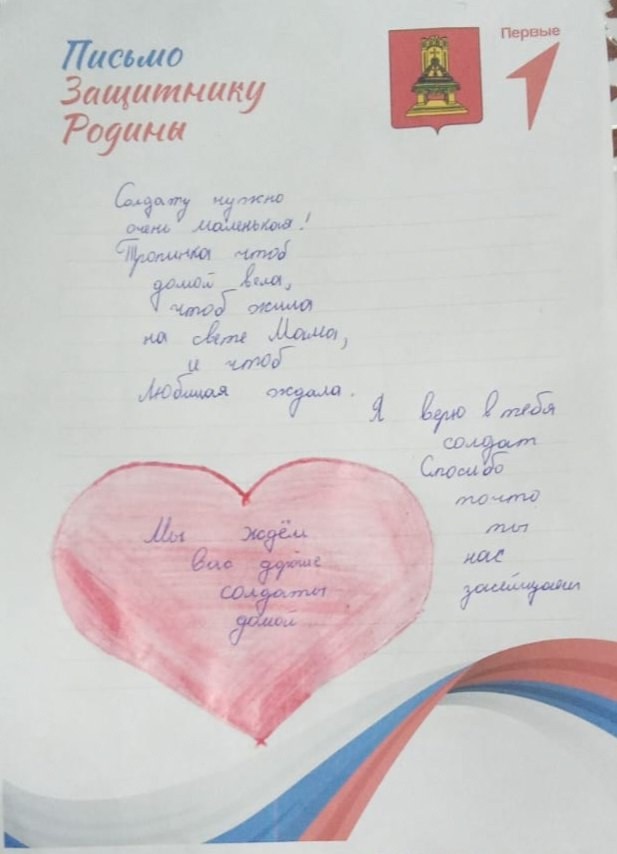 Письмо
Защитнику
Родины
Первые
Солдату нужно
очень маленькая!
Тропинка чтоб
домой вела,
чтоб жила
на свете Мама,
и чтоб
Любимая ждала.
Я верю в тебя
солдат
Спосибо
ты
нас
Мы ждём
вас
солдаты
домой